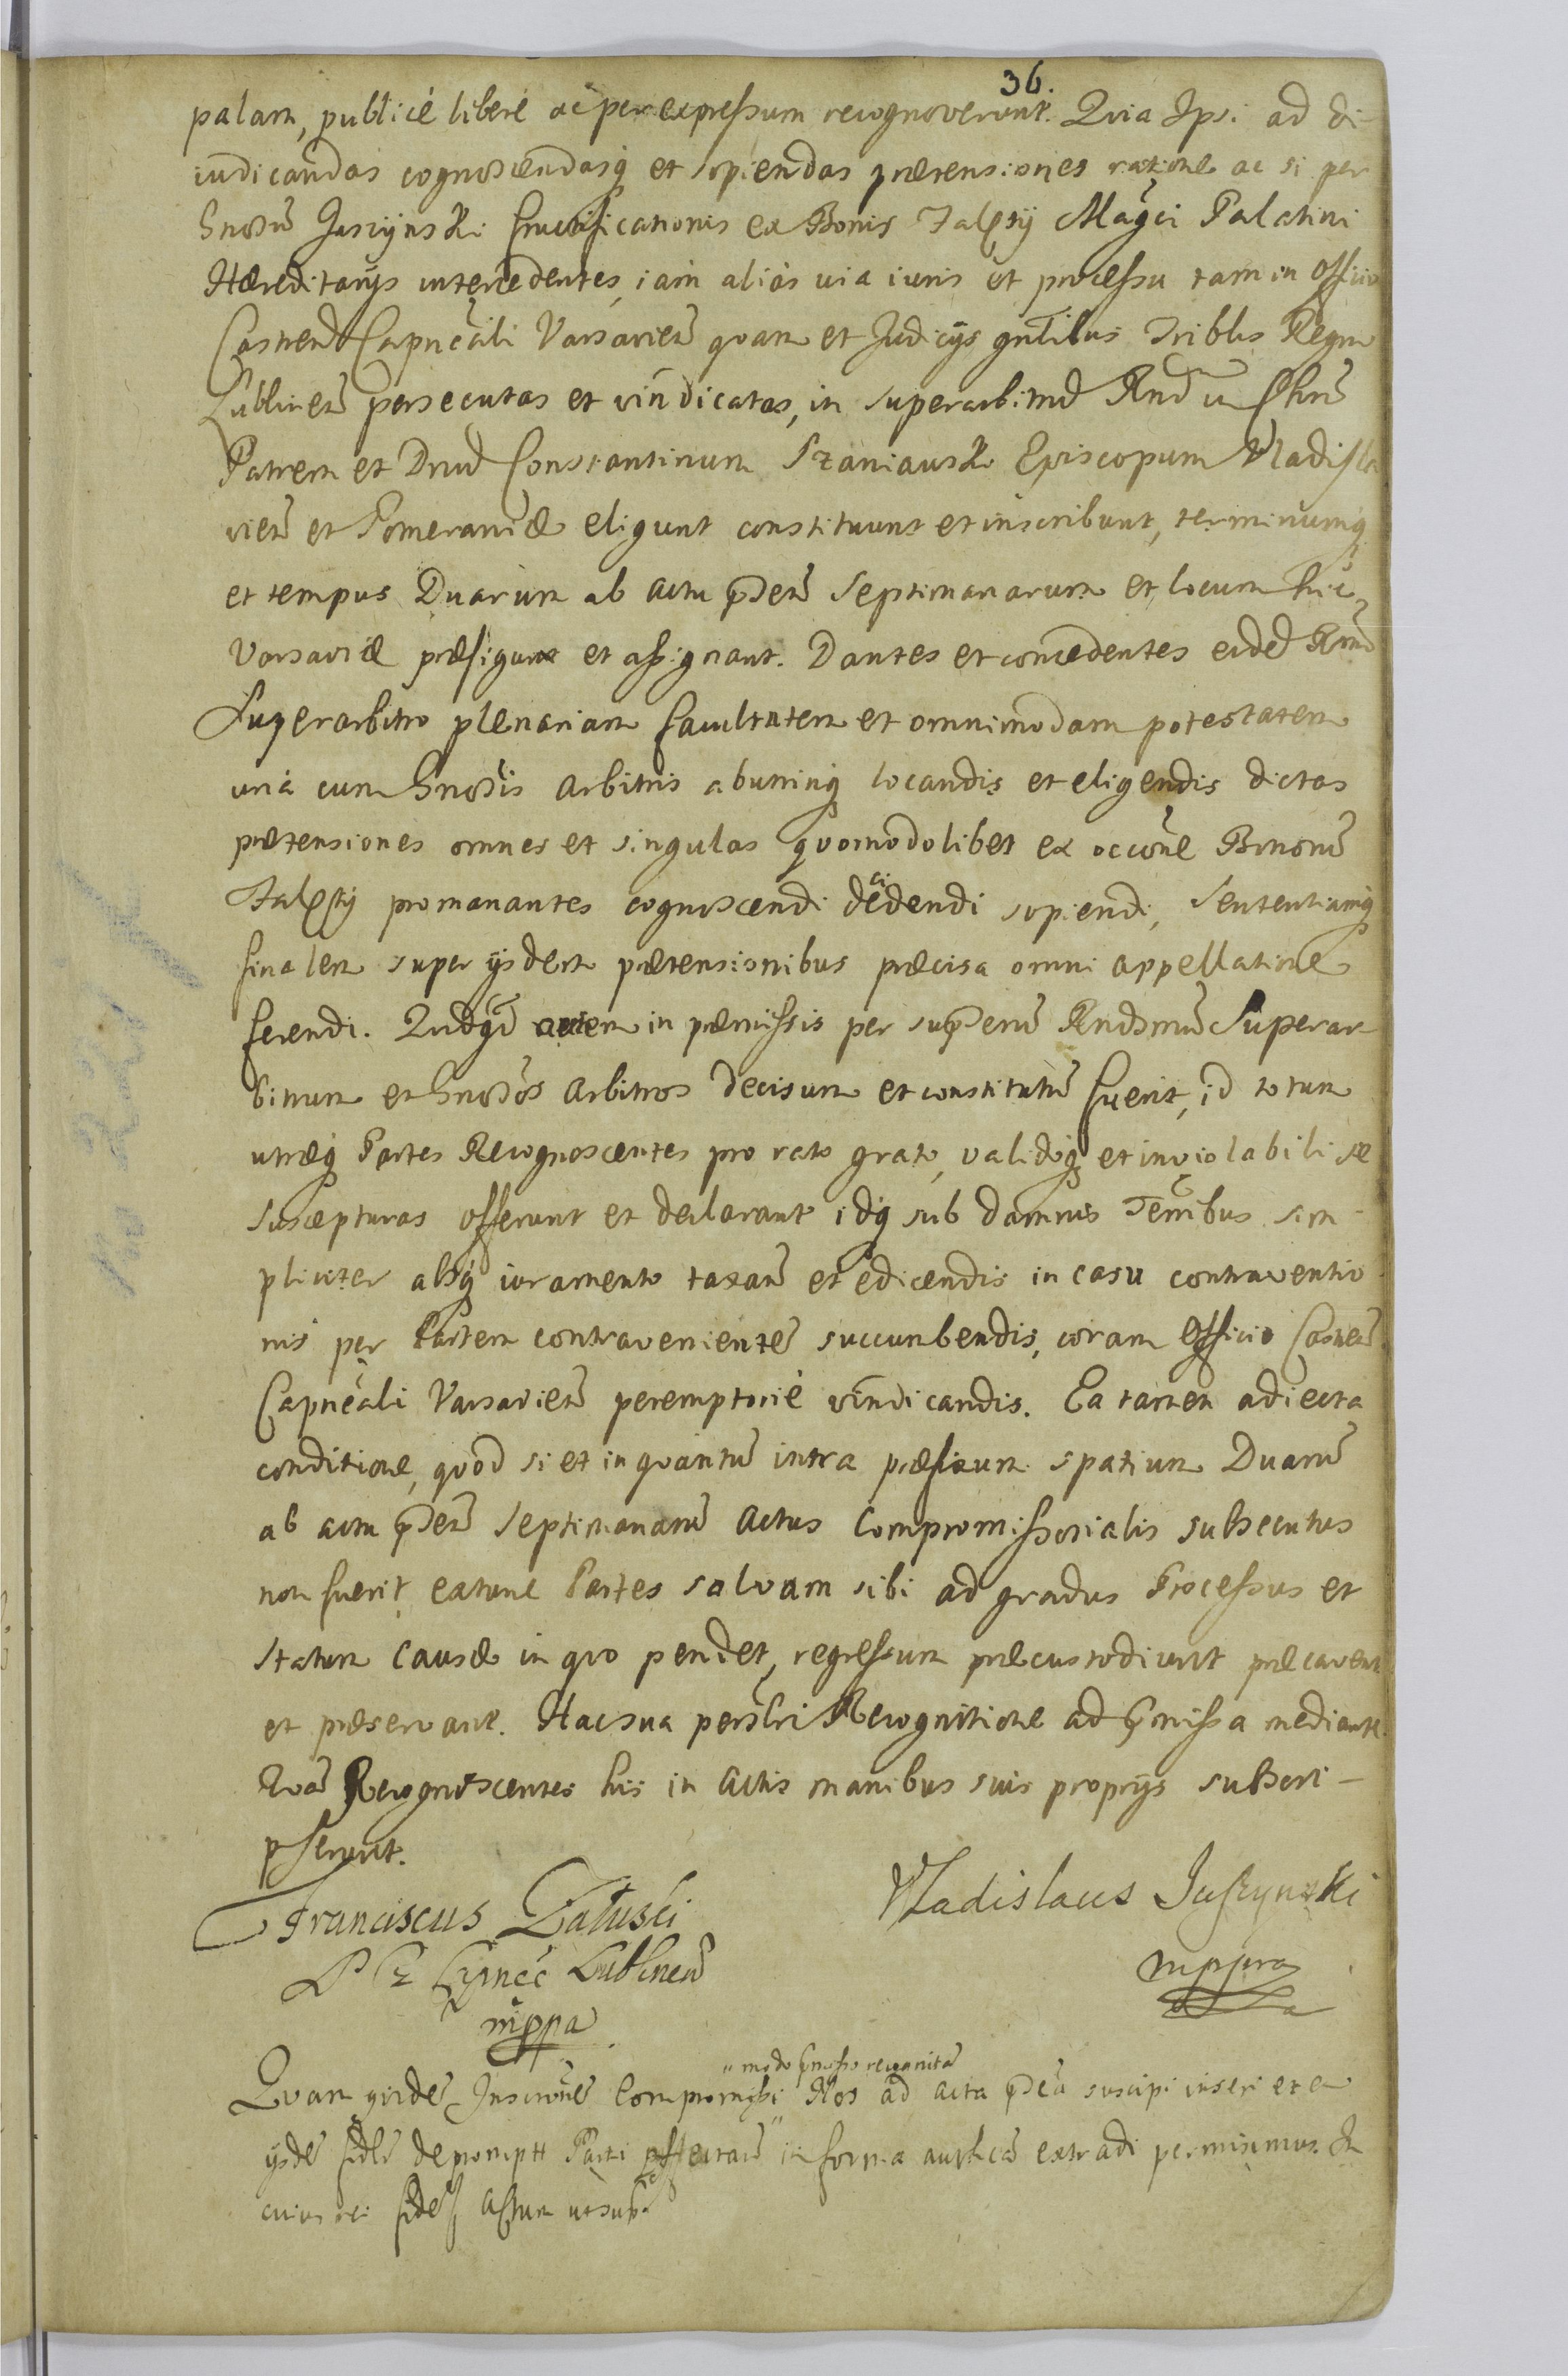 36.
palam, publicè libere ac per expressum recognoverunt. Quia Ipsi ad di-
iudicandas cognoscendasq et sopiendas prætensiones ratione ac si per
Gnosum Juszynski fructificationis ex Bonis Falęty Magci Palatini
Hæreditarijs intercedentes, iam aliàs via iuris et processu tam in Officio
Castren Capneali Varsavien quam et Judicijs gnlibus Triblis Regni
Lublinen persecutas et vindicatas, in superarbitrud Rnd in Chro
Patrem et Dnud Constantinum Szaniawski Episcopum Vladisla
vien et Pomeraniæ eligunt constituunt et inscribunt, terminumq
et tempus Duarum ab actu pnsen Septimanarum et locum hic
Varsaviæ præfigunt et assignant. Dantes et concedentes eidem Rmo
Superarbitro plenariam facultatem et omnimodam potestatem
unà cum Gnosis Arbitris abutrinq locandis et eligendis dictas
prætensiones omnes et singulas quomodolibet ex occone Bonorum
Falęty promanantes cognoscendi decidendi sopiendi, Sententiamq
finalem super ijsdem prætensionibus præcisa omni appellatione
ferendi. Quidqd autem in præmissis per supsenu Rndsmu Superar
bitrum et Gnosos Arbitros decisum et constitutu fuerit, id totum
utræq Partes Recognoscentes pro rato grato, validoq et inviolabili se
suscepturas offerunt et declarant idq sub damnis Terribus sim-
pliciter absq iuramento taxan et edicendis in casu contraventio
nis per Partem contraveniente succumbendis, coram Officio Castren
Capneali Varsavien peremptoriè vindicandis. Ea tamen adiecta
conditione, quod si et inquantu intra præfixum spatium Duaru
ab actu pnsen Septimanaru Actus Compromissorialis subsecutus
non fuerit, extunc Partes salvam sibi ad gradus Processus et
statum causæ in quo pendet, regressum præcustodiunt præcavent
et præservant. Hac sua persbri Recognitione ad pmissa mediante.
Quam Recognoscentes his in Actis manibus suis proprijs subscri-
pserunt.
Franciscus Załuski
P Cz Cpnec Lublinen
mppa
Vladislaus Juszynski
mppria
modo pmisso recognitam
Quam quide Inscrone Compromissi Nos ad acta psen suscipi inseri et ex
ijsde fidlr deprompt Parti affectan in forma authca extradi permisimus. In
cuius rei fidem Actum utsupra